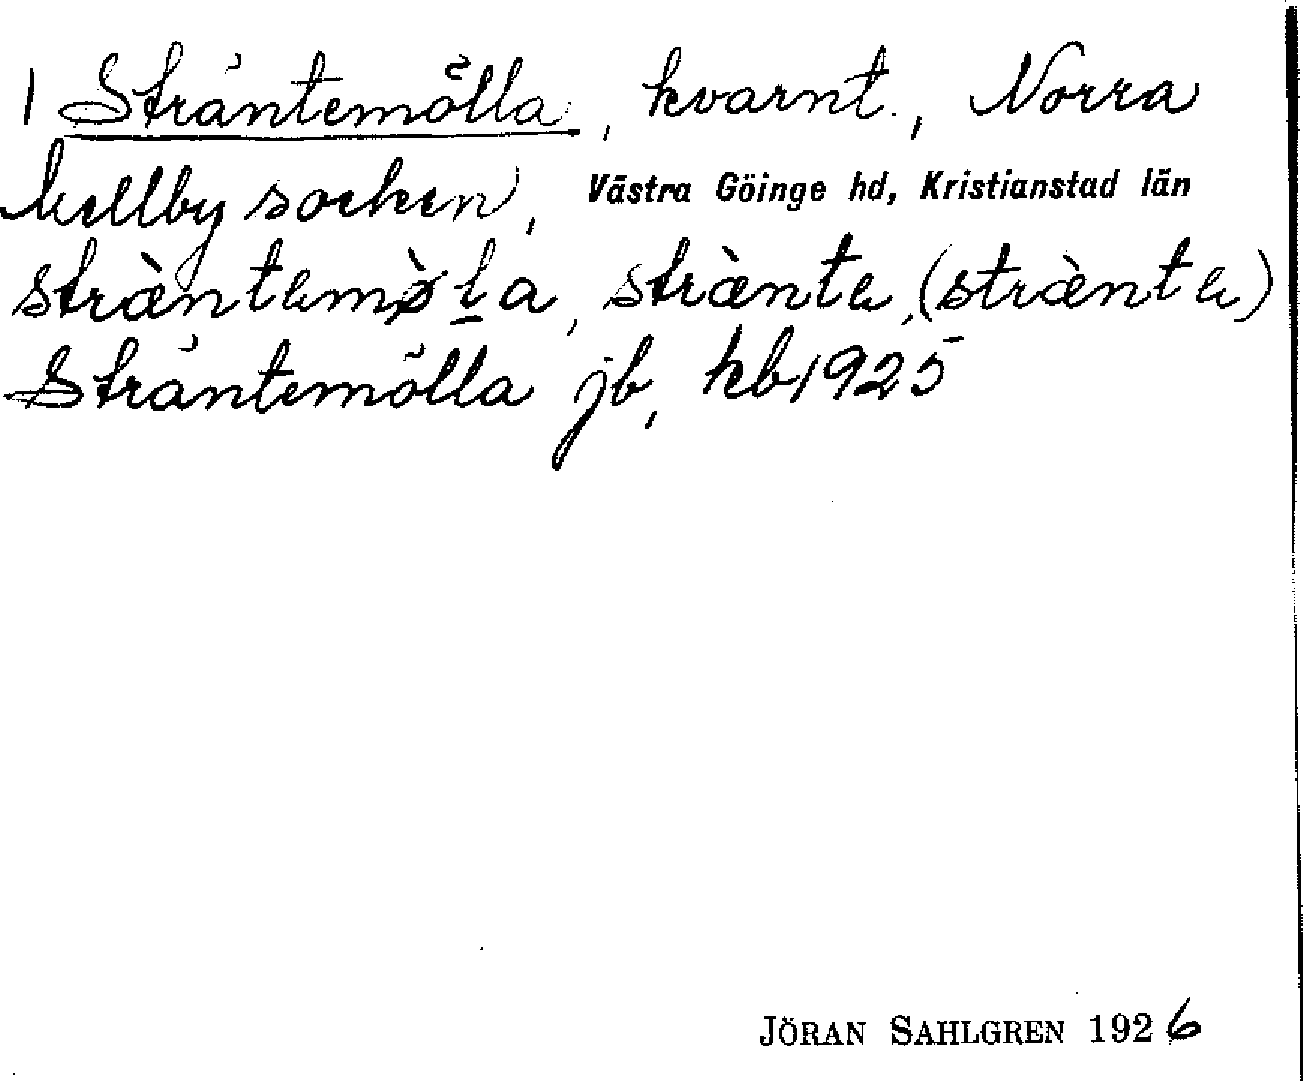 1 Sträntemölla, kvarnt., Norra
Mellby socken, Västra Göinge hd, Kristianstad län
stræ̀ntemø̀l̠a, stræ̀nte, (stræ̀nte)
Sträntemölla jb, kb 1925
JÖRAN SAHLGREN 1926